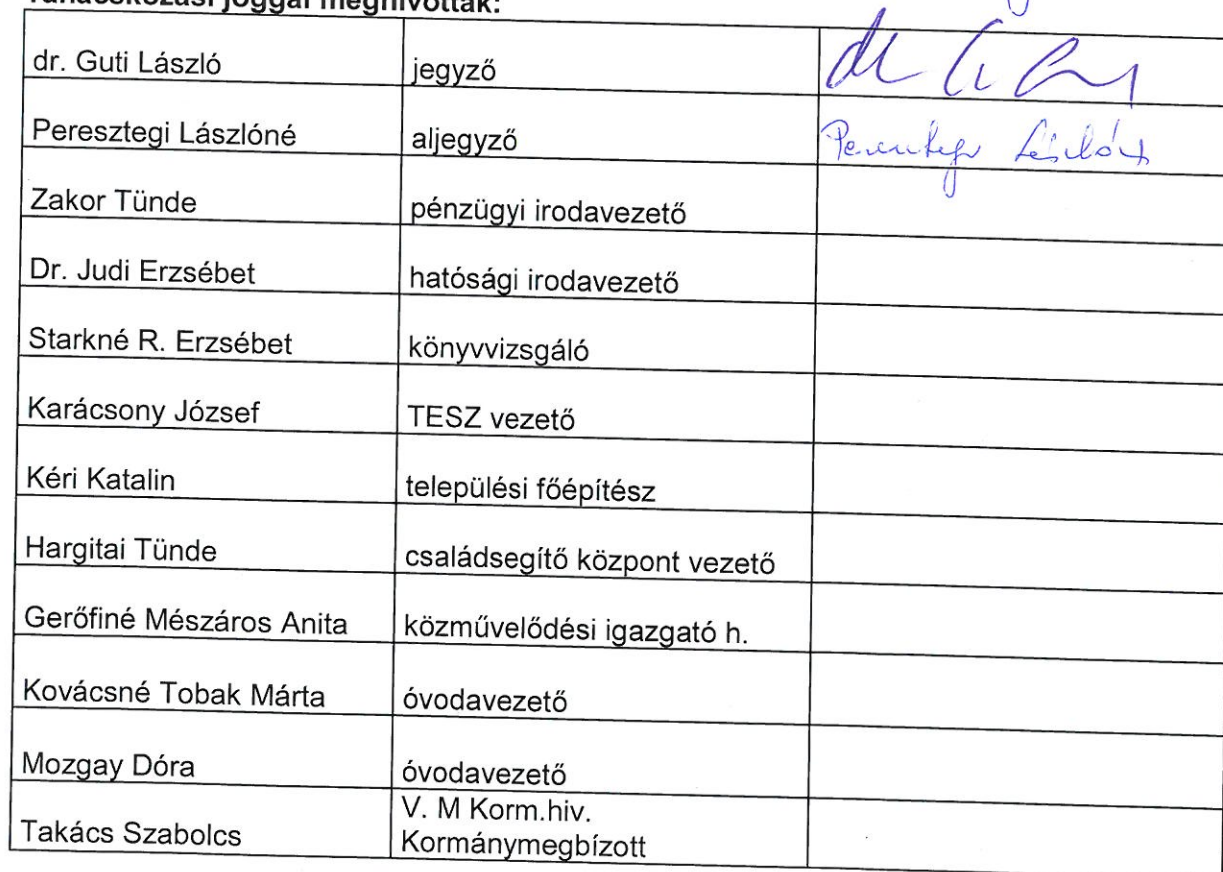 Tanácskozási joggal meghívottak:
dr. Guti László jegyző
Peresztegi Lászlóné aljegyző Peresztegi Lászlóné
Zakor Tünde pénzügyi irodavezető
Dr. Judi Erzsébet hatósági irodavezető
Starkné R. Erzsébet könyvvizsgáló
Karácsony József TESZ vezető
Kéri Katalin települési főépítész
Hargitai Tünde családsegítő központ vezető
Gerőfiné Mészáros Anita közművelődési igazgató h.
Kovácsné Tobak Márta óvodavezető
Mozgay Dóra óvodavezető
Takács Szabolcs V. M Korm.hiv.
Kormánymegbízott